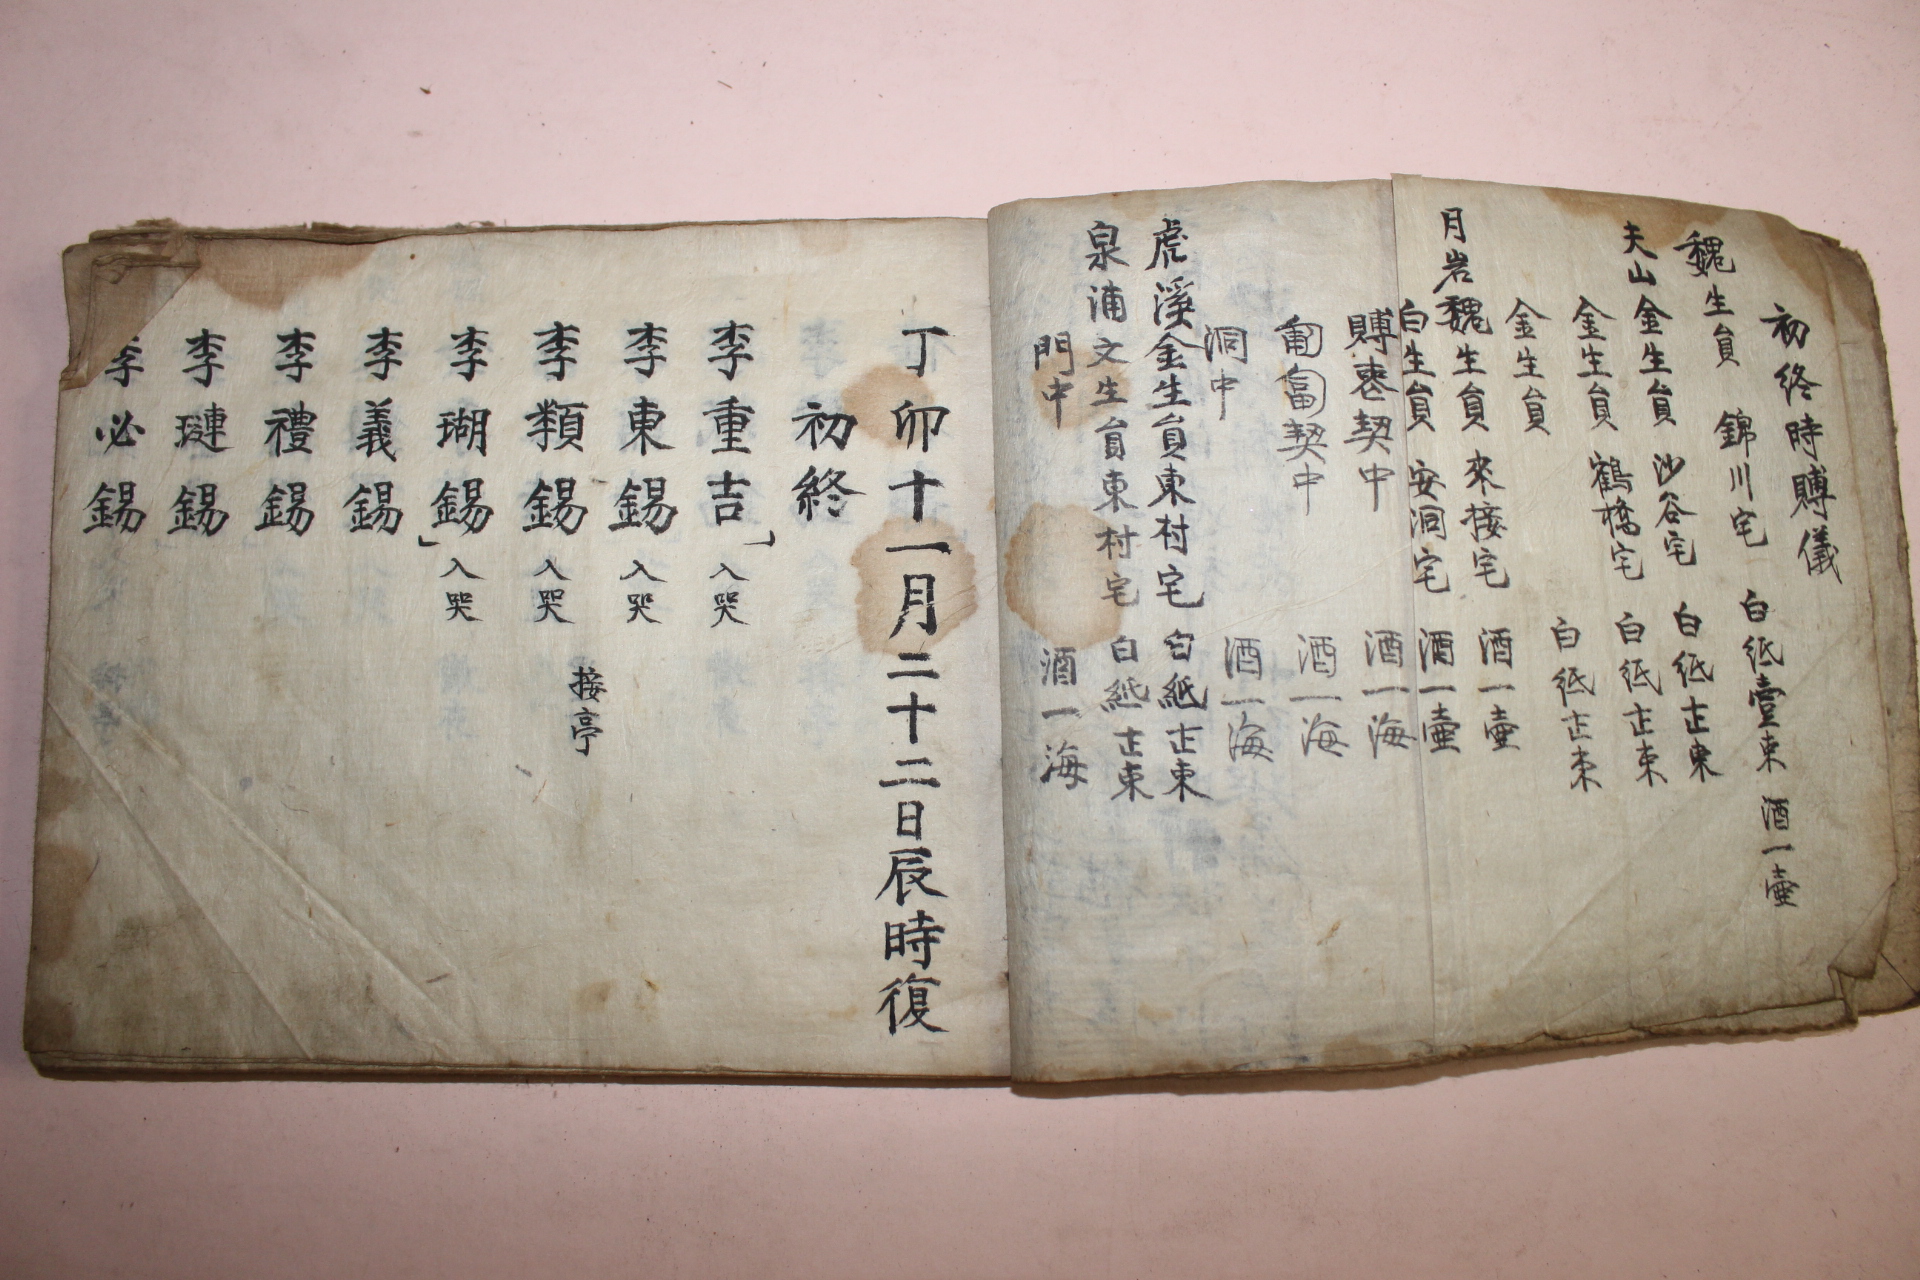 初終時賻儀
魏生員 錦川宅 白紙壹束 酒一壷
夫山金生員 沙谷宅 白紙壱束
金生員 鶴橋宅 白紙壱束
金生員 白紙壱束
月岩魏生員 來接宅 酒一壷
白生員 安洞宅 酒一壷
賻 契中 酒一海
契中 酒一海
洞中 酒一海
虎溪金生員東村宅 白紙壱束
泉浦文生員東村宅 白紙壱束
門中 酒一海
丁卯十一月二十二日辰時復
初終
李重吉 入哭
李東錫 入哭
李類錫 入哭 接亭
李瑚錫 入哭
李義錫
李禮錫
李璉錫
李必錫